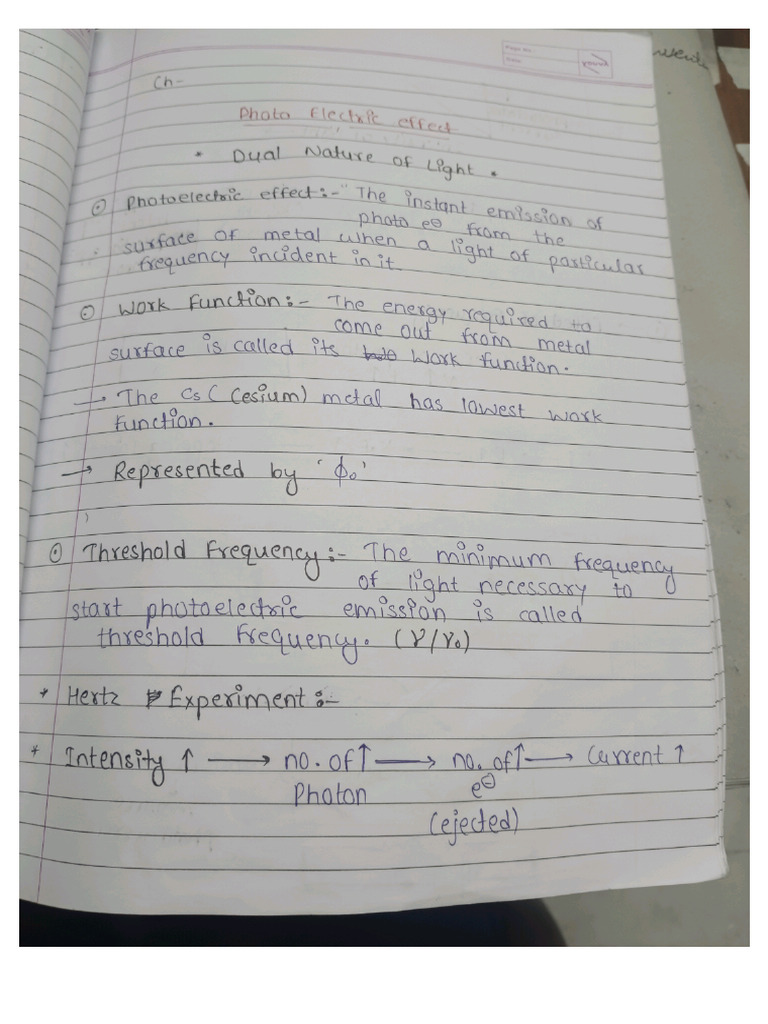 Ch-
Photo Electric effect
* Dual Nature of Light *
⊙ Photoelectric effect:- "The instant emission of
photo e⊖ from the
surface of metal when a light of particular
frequency incident in it.
⊙ Work Function:- The energy required to
come out from metal
surface is called its work function.
→ The Cs (Cesium) metal has lowest work
function.
→ Represented by 'ϕ₀'
⊙ Threshold Frequency:- The minimum frequency
of light necessary to
start photoelectric emission is called
threshold frequency. (γ/γ₀)
* Hertz Experiment:-
* Intensity ↑ → no. of ↑ → no. of ↑ → Current ↑
Photon e⊖
(ejected)